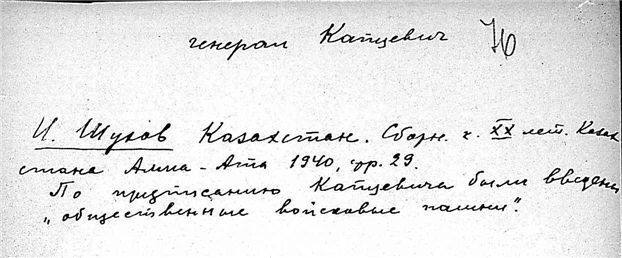 генерал Капцевич 76
И. Шухов Казахстан. Сборн. к. XX лет. Казах
стана Алма-Ата 1940, стр. 29.
По предписанию Капцевича были введены
„общественные войсковые пашни".